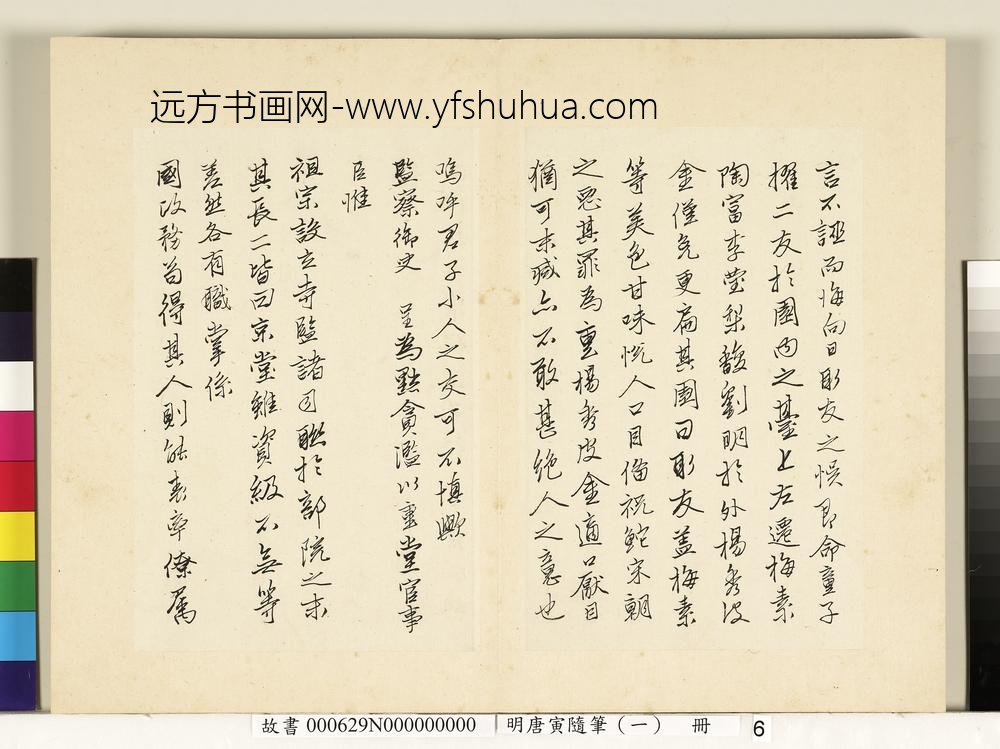 远方书画网-www.yfshuhua.com
言不誣而悔向日彫友之悞即命童子
擢二友於園内之臺上左遷梅素
陶富李瑩梨馥劉明於外楊秀皮
金僅免更扁其園曰彫友蓋梅素
等美色甘味悦人口目偹祝鮀宋朝
之惡其罪為重楊秀皮金適口厭目
猶可末減亦不敢甚絶人之意也
嗚呼君子小人之交可不慎歟
監察御史 呈為黜貪濫以重堂官事
臣惟
祖宗設立寺監諸司聮於部院之末
其長二皆曰京堂雖資級不無等
差然各有職掌係
國政務苟得其人則能表率僚属
故書 000629N000000000 明唐寅隨筆(一) 冊 6